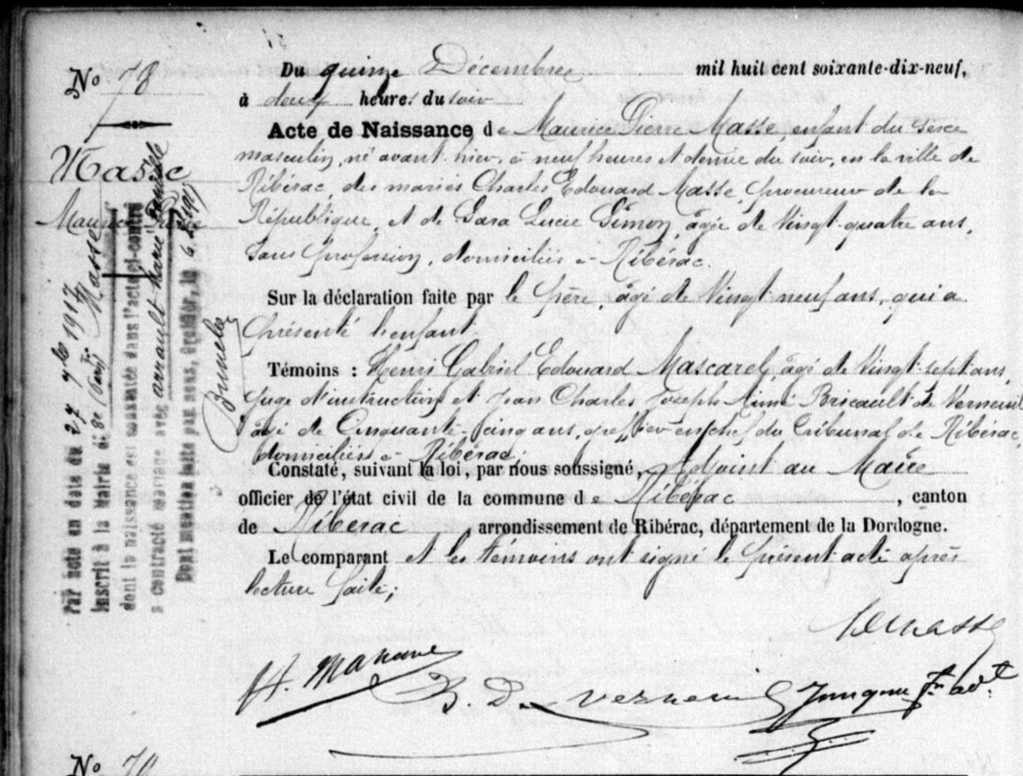 No 78
Masse
Maurice Pierre
Du quinze Décembre mil huit cent soixante-dix-neuf,
à deux heures du soir
Acte de Naissance de Maurice Pierre Masse, enfant du sexe
masculin, né avant-hier, à neuf heures et demie du soir, en la ville de
Ribérac, des mariés Charles Edouard Masse, procureur de la
République, et de Sara Lucie Simon, âgée de Vingt-quatre ans,
Sans profession, domiciliés à Ribérac.
Sur la déclaration faite par le père, âgé de Vingt-neuf ans, qui a
présenté l'enfant.
Témoins : Henri Gabriel Edouard Mascarel, âgé de Vingt-sept ans,
Juge d'instruction et Jean Charles Joseph Aimé Bricault de Verneuil
âgé de Cinquante-cinq ans, greffier en chef du Tribunal de Ribérac,
domiciliés à Ribérac;
Constaté, suivant la loi, par nous soussigné, Adjoint au Maire
officier de l'état civil de la commune de Ribérac, canton
de Ribérac arrondissement de Ribérac, département de la Dordogne.
Le comparant et les témoins ont signé le présent acte après
lecture faite;
Par acte en date du 27 7bre 1917
inscrit à la Mairie du 8e (Paris) Masse
dont la naissance est constatée dans l'acte ci-contre
a contracté mariage avec Arrault Marie
Dont mention faite par nous, Greffier, le 6
Masse
B. De Verneuil
No 79